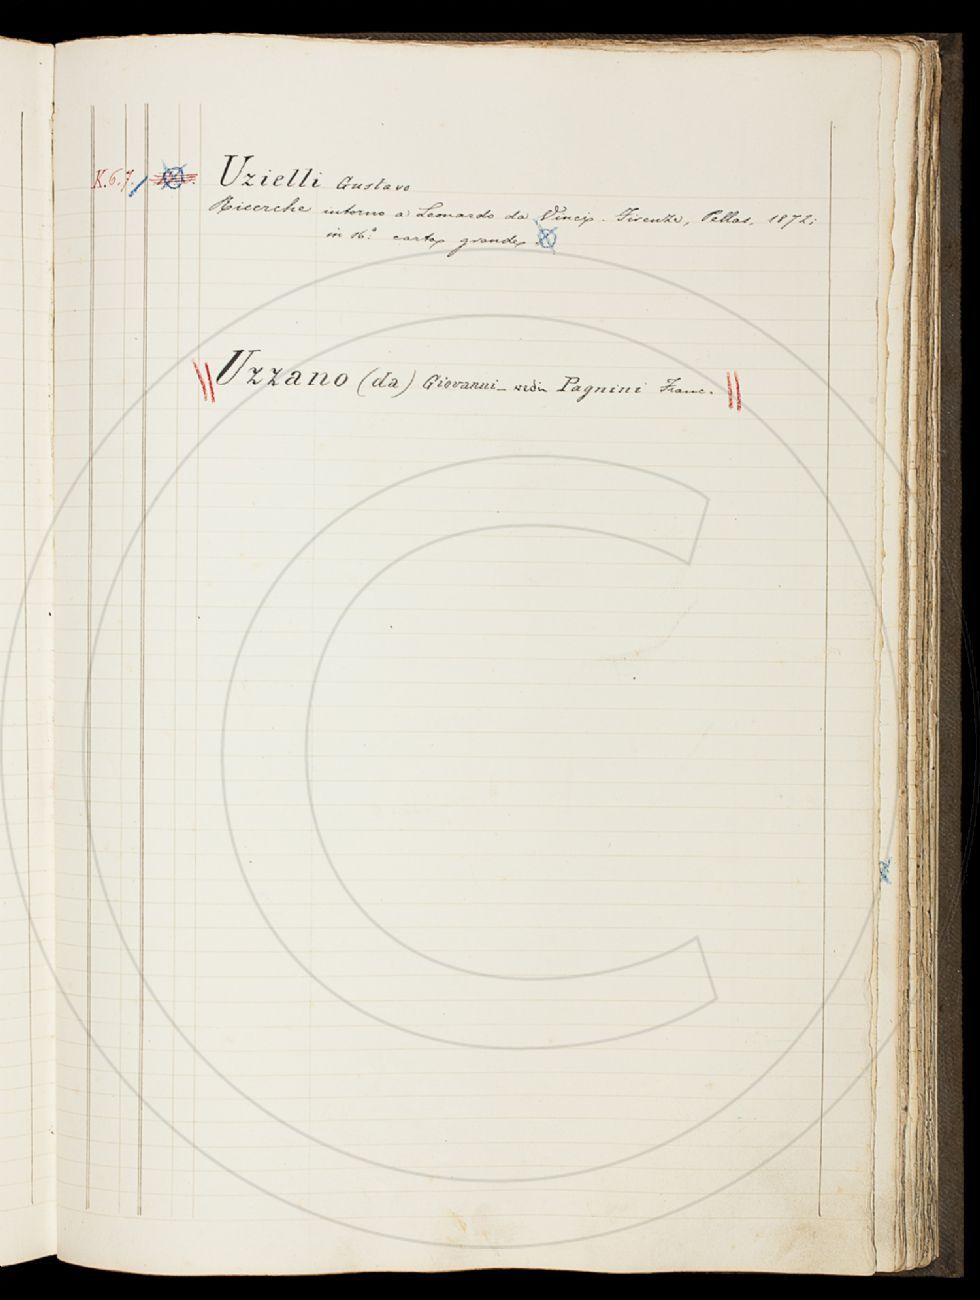 K.6.7. Uzielli Gustavo
Ricerche intorno a Leonardo da Vinci. Firenze, Pellas, 1872;
in 16.º carta grande.
Uzzano (da) Giovanni - vedi Pagnini Franc.